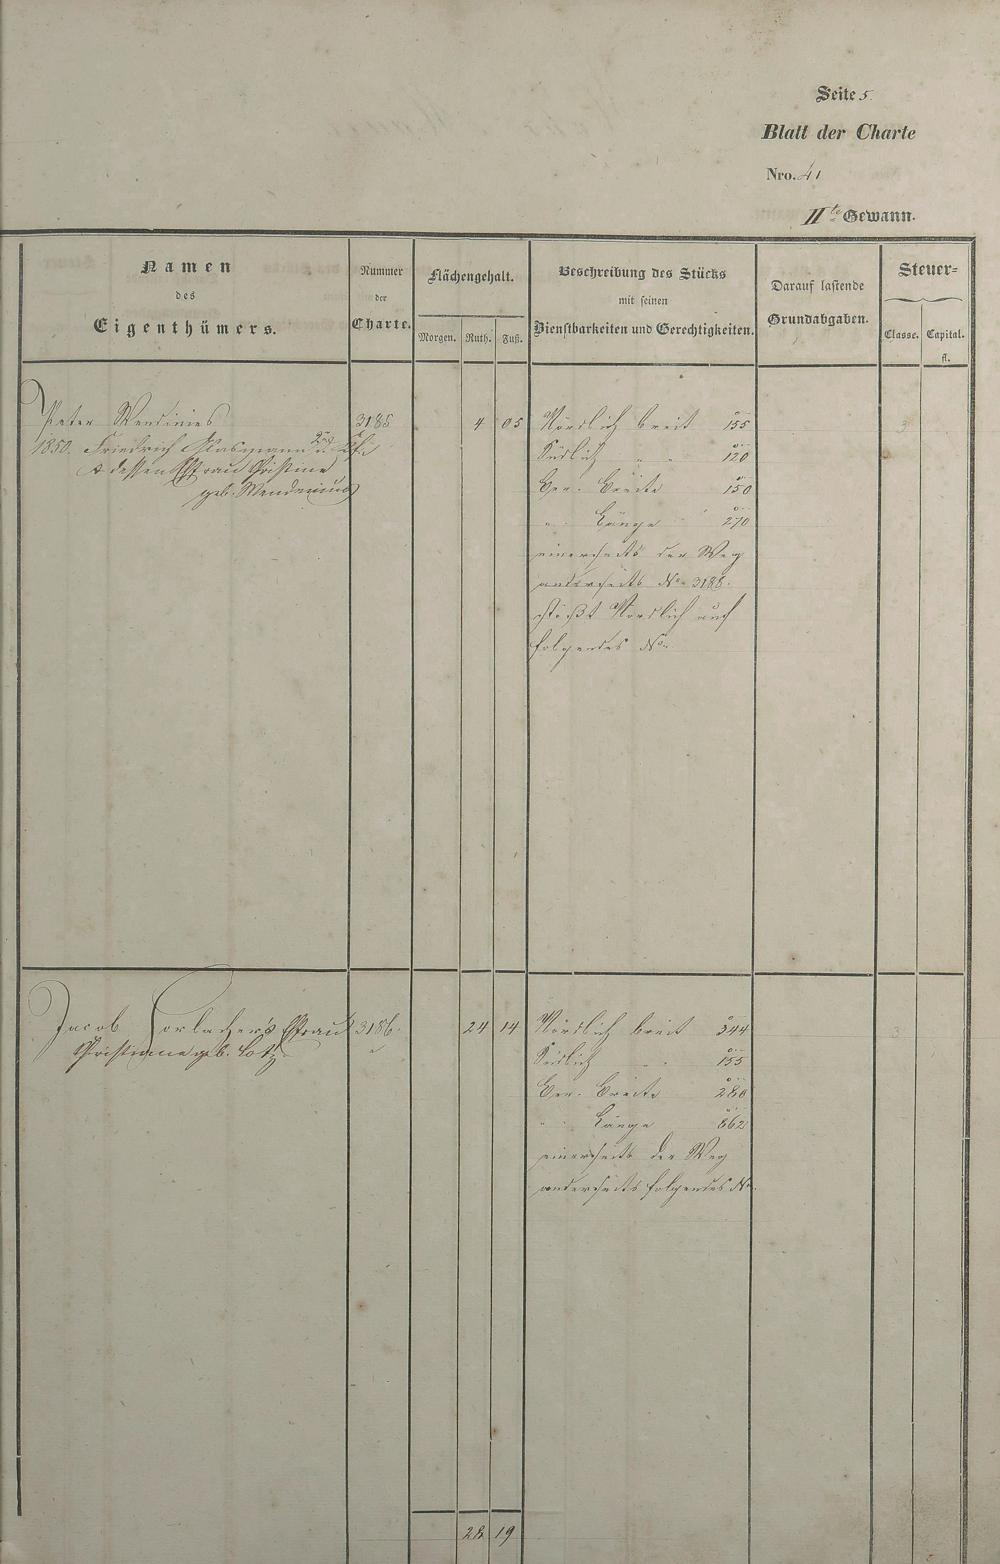 Seite 5.
Blatt der Charte
Nro. 41
IIte Gewann.
Namen
des
Eigenthümers.
Nummer
der
Charte.
Flächengehalt.
Morgen. Ruth. Fuß.
Beschreibung des Stücks
mit seinen
Dienstbarkeiten und Gerechtigkeiten.
Darauf lastende
Grundabgaben.
Steuer=
Classe. Capital.
fl.
Peter 3185 4 05 Nördlich breit 155
1850. Friedrich
& dessen Ehfrau Christine
geb.
Südlich " " 120
Ger. Breite 150
" Länge 270
einerseits der Weg
anderseits No 3188.
stößt Nördlich auf
folgendes No
3
Jacob Horlacher's Ehfrau 3186. 24 14 Nördlich breit 344
Christianne geb. Lotz
Südlich " " 155
Ger. Breite 280
" Länge 862
einerseits der Weg
anderseits folgendes No.
3
28 19